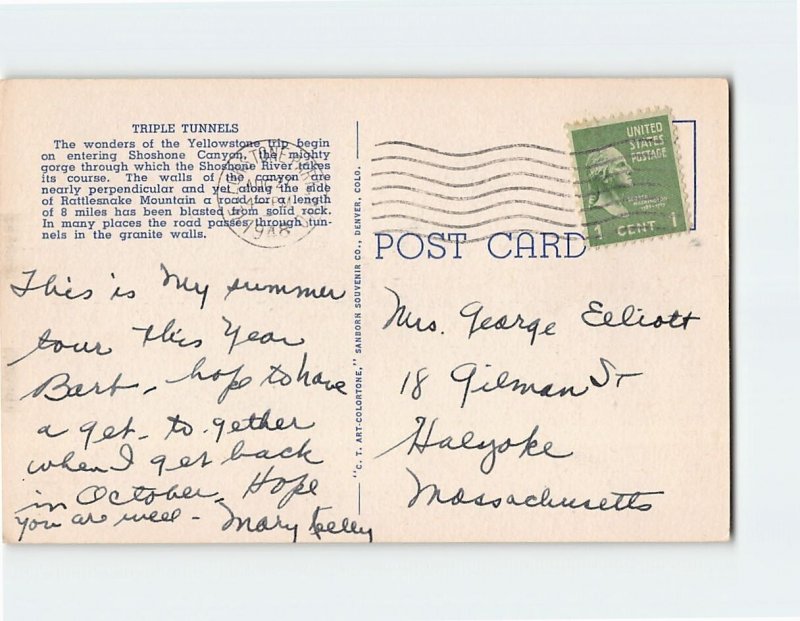 TRIPLE TUNNELS
The wonders of the Yellowstone trip begin
on entering Shoshone Canyon, the mighty
gorge through which the Shoshone River takes
its course. The walls of the canyon are
nearly perpendicular and yet along the side
of Rattlesnake Mountain a road for a length
of 8 miles has been blasted from solid rock.
In many places the road passes through tun-
nels in the granite walls.
This is My summer
tour this Year
Barb - hope to have
a get-to-gether
when I get back
in October. Hope
you are well -
Mary Kelly
"C. T. ART-COLORTONE," SANBORN SOUVENIR CO., DENVER, COLO.
1948
UNITED
STATES
POSTAGE
1 CENT 1
POST CARD
Mrs. George Elliott
18 Gilman St
Halyoke
Massachusetts